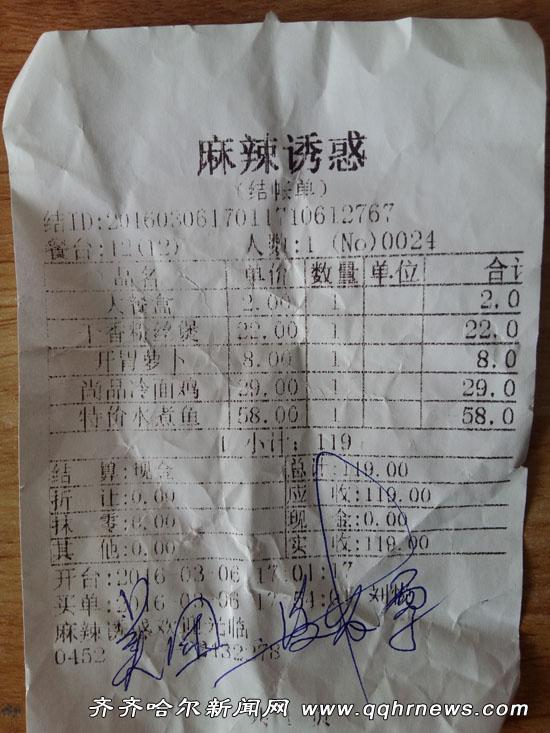 麻辣诱惑
(结帐单)
结ID:2016030617011710612767
餐台:12(12) 人数:1 (No)0024
品名 单价 数量 单位 合计
大餐盒 2.00 1 2.0
干香粉丝煲 22.00 1 22.0
开胃萝卜 8.00 1 8.0
尚品冷面鸡 29.00 1 29.0
特价水煮鱼 58.00 1 58.0
小计: 119
结 算:现金 总 计:119.00
折 让:0.00 应 收:119.00
抹 零:0.00 现 金:0.00
其 他:0.00 实 收:119.00
开台:2016-03-06 17:01:17
买单:2016-03-06
麻辣诱惑欢迎光临
0452
齐齐哈尔新闻网 www.qqhrnews.com